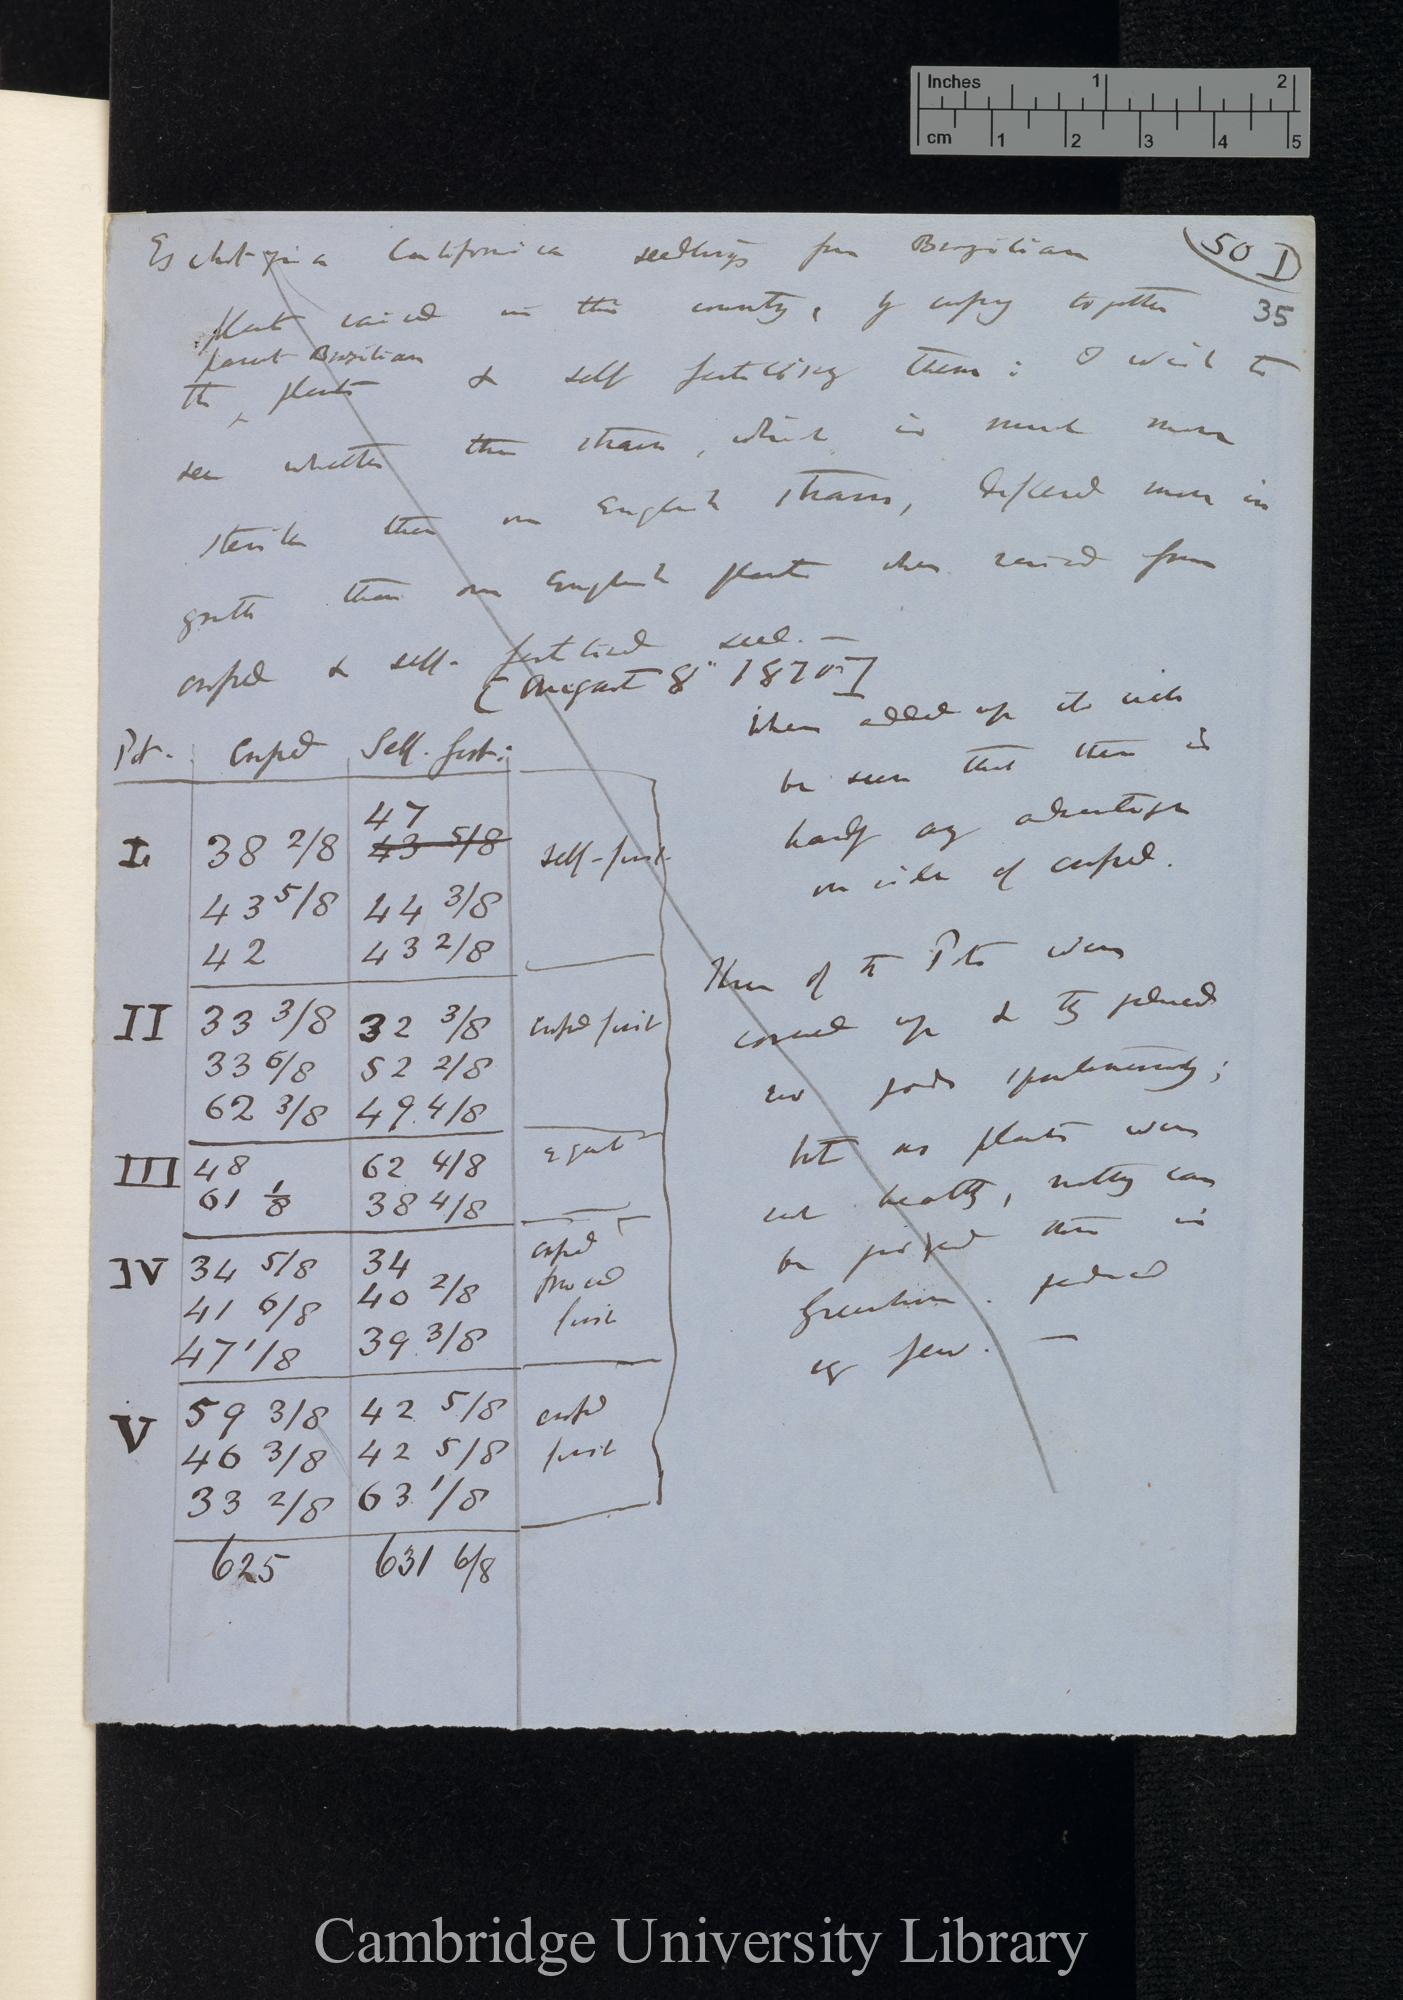 Inches 1 2
cm 1 2 3 4 5
50 I
35
Eschholtzia Californica seedlings from Brazilian
plants raised in this country, by crossing together
parent Brazilian
the ^ plants & self fertilising them: I wish to
see whether this strain, which is much more
sterile than our English strain, differed more in
growth than our English plants when raised from
crossed & self-fertilised seed. —
[August 8th 1870]
Pot. Crossed Self-fert:
47
I 38 2/8 43 5/8 self-first
43 5/8 44 3/8
42 43 2/8
II 33 3/8 32 3/8 crossed first
33 6/8 52 2/8
62 3/8 49 4/8
III 48 62 4/8 equal
61 1/8 38 4/8
IV 34 5/8 34 crossed
41 6/8 40 2/8 flowered
47 1/8 39 3/8 first
V 59 3/8 42 5/8 crossed
46 3/8 42 5/8 first
33 2/8 63 1/8
625 631 6/8
When added up it will
be seen that there is
hardly any advantage
on side of crossed.
Three of the Pots were
covered up & they produced
no pods spontaneously;
but as plants were
not healthy, nothing can
be judged there in
Greenhouse. produced
very few. —
Cambridge University Library